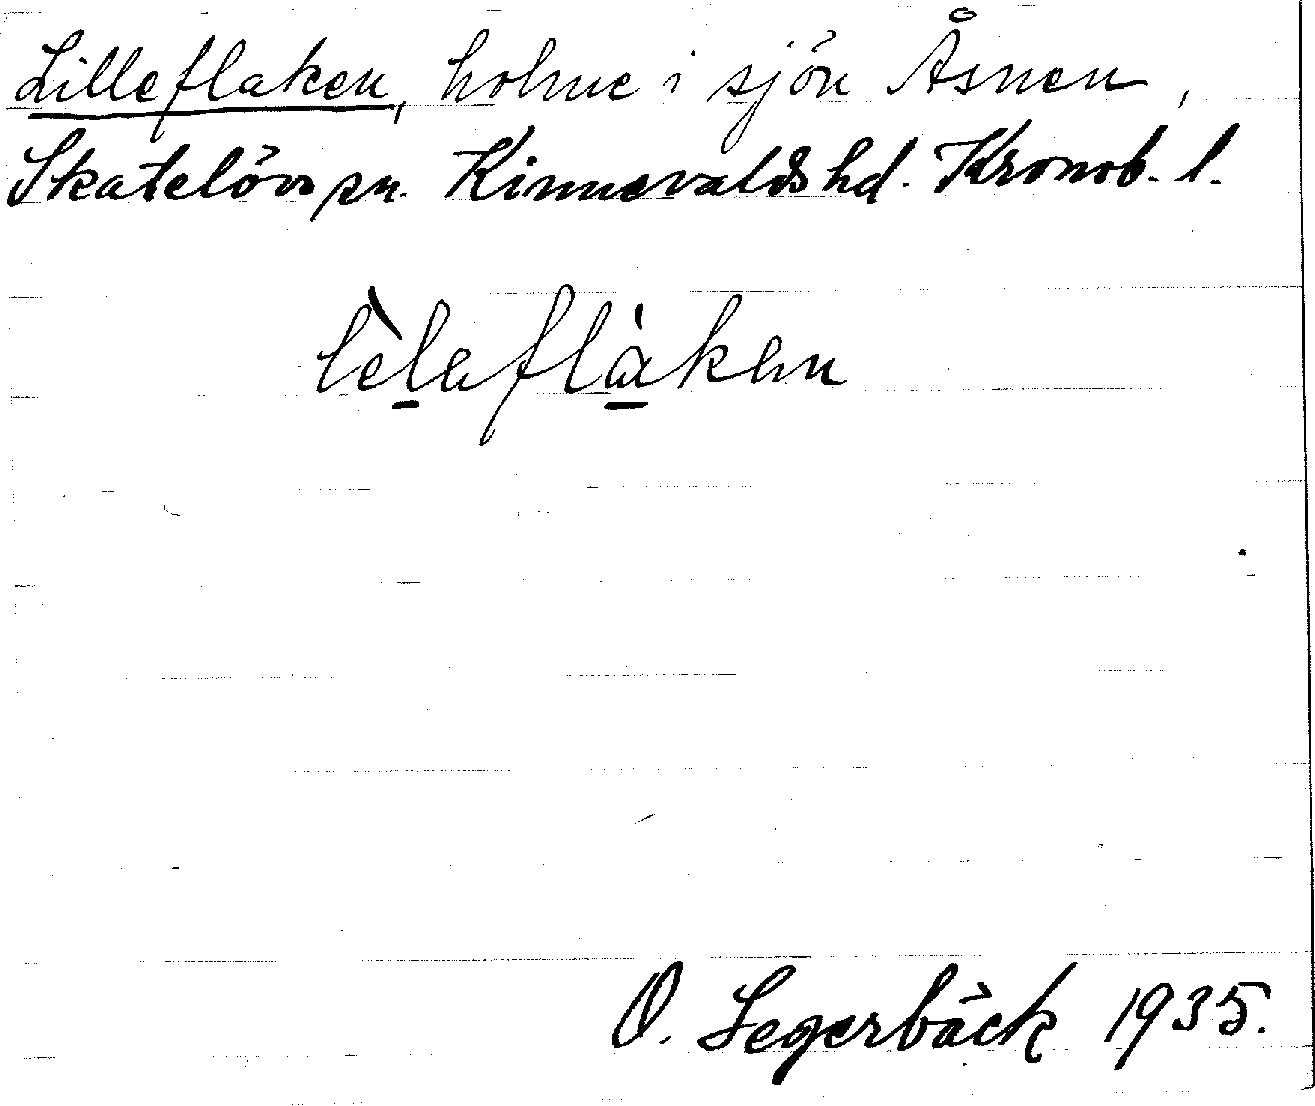 Lilleflaken, holme i sjön Åsnen,
Skatelövs sn. Kinnevalds hd. Kronob. l.
lèlaflàkan
O. Segerbäck 1935.